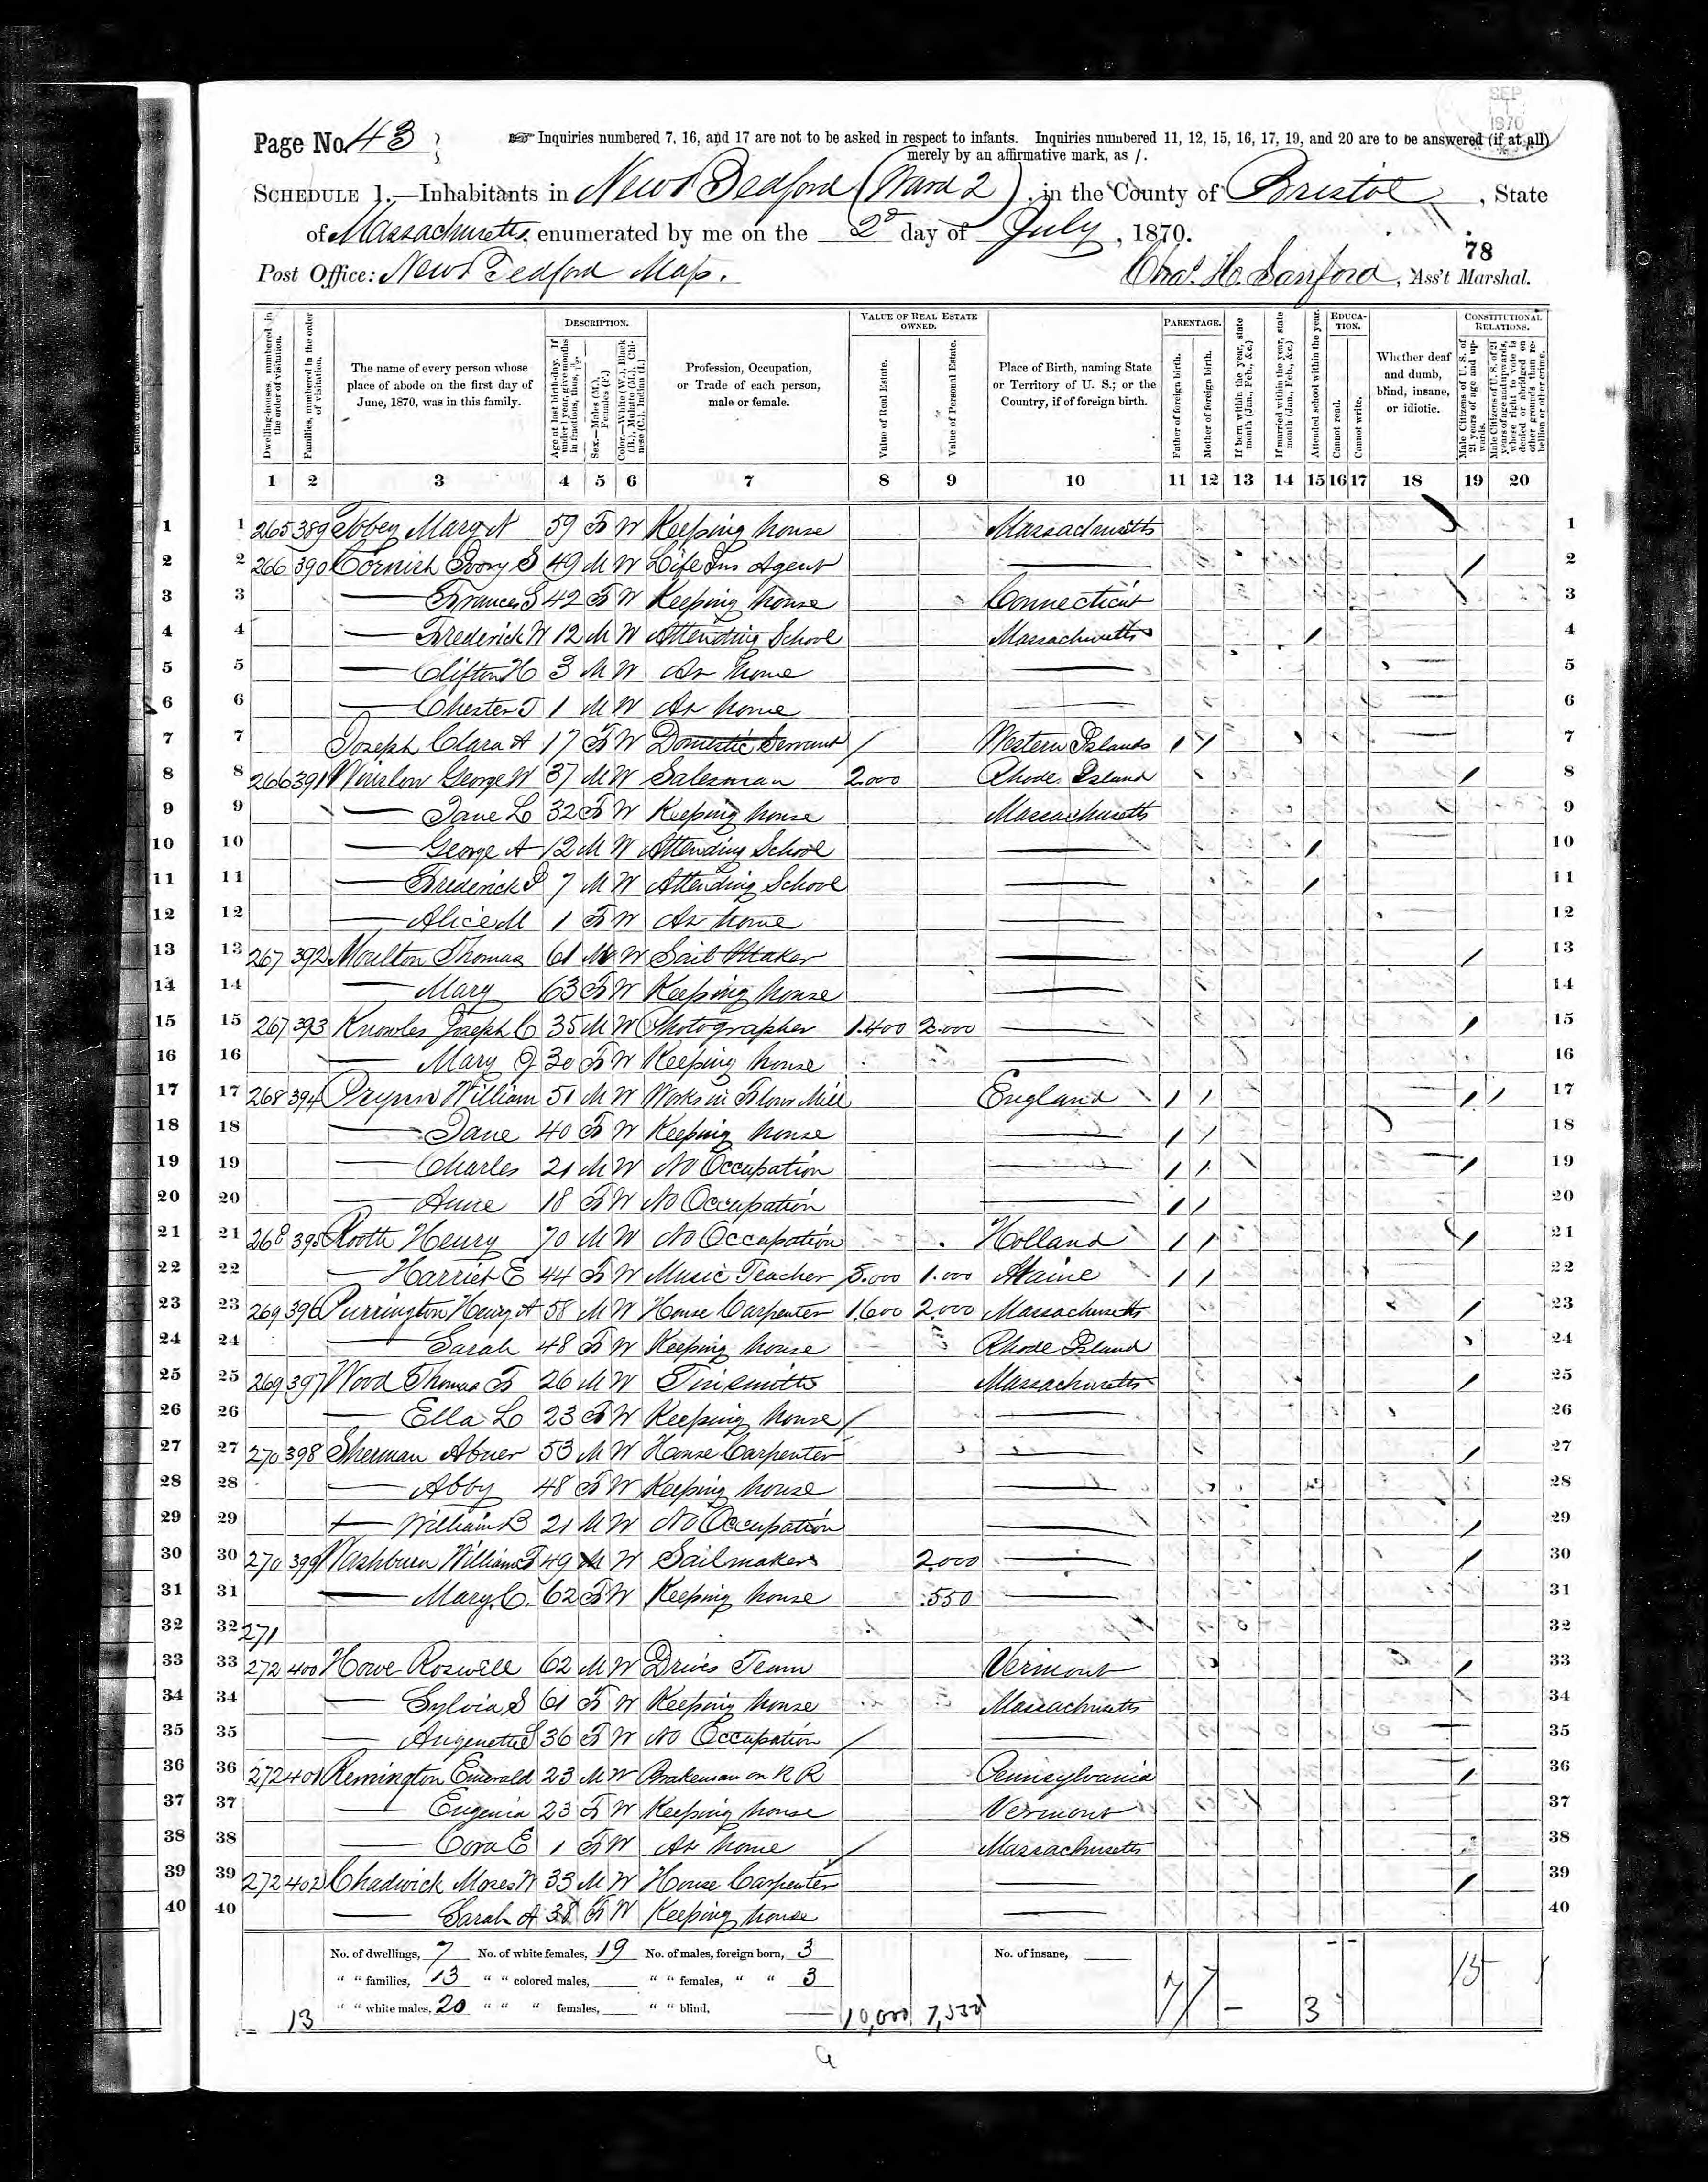 SEP
1
1870
Page No. 43
Inquiries numbered 7, 16, and 17 are not to be asked in respect to infants. Inquiries numbered 11, 12, 15, 16, 17, 19, and 20 are to be answered (if at all)
merely by an affirmative mark, as /.
SCHEDULE 1.—Inhabitants in New Bedford (Ward 2), in the County of Bristol, State
of Massachusetts, enumerated by me on the 2d day of July, 1870.
78
Post Office: New Bedford Mass. Chas. H. Sanford, Ass't Marshal.
Dwelling-houses, numbered in the order of visitation.
Families, numbered in the order of visitation.
The name of every person whose place of abode on the first day of June, 1870, was in this family.
DESCRIPTION.
Age at last birth-day. If under 1 year, give months in fractions, thus,
Sex.—Males (M.), Females (F.)
Color.—White (W.), Black (B.), Mulatto (M.), Chinese (C.), Indian (I.)
Profession, Occupation, or Trade of each person, male or female.
VALUE OF REAL ESTATE OWNED.
Value of Real Estate.
Value of Personal Estate.
Place of Birth, naming State or Territory of U. S.; or the Country, if of foreign birth.
PARENTAGE.
Father of foreign birth.
Mother of foreign birth.
If born within the year, state month (Jan., Feb., &c.)
If married within the year, state month (Jan., Feb., &c.)
Attended school within the year.
EDUCATION.
Cannot read.
Cannot write.
Whether deaf and dumb, blind, insane, or idiotic.
CONSTITUTIONAL RELATIONS.
Male Citizens of U. S. of 21 years of age and upwards.
Male Citizens of U. S. of 21 years of age and upwards, whose right to vote is denied or abridged on other grounds than rebellion or other crime.
1 2 3 4 5 6 7 8 9 10 11 12 13 14 15 16 17 18 19 20
1 1 265 389 Mary N 59 F W Keeping house Massachusetts 1
2 2 266 390 Cornish Ivory S 49 M W Life Ins Agent — / 2
3 3 — Frances S 42 F W Keeping house Connecticut 3
4 4 — Frederick W 12 M W Attending School Massachusetts / 4
5 5 — Clifton H 3 M W At home — 5
6 6 — Chester T 1 M W At home — 6
7 7 Joseph Clara A 17 F W Domestic Servant / Western Islands / / 7
8 8 266 391 Winslow George W 37 M W Salesman 2.000 Rhode Island / 8
9 9 — Jane L 32 F W Keeping house Massachusetts 9
10 10 — George A 12 M W Attending School — / 10
11 11 — Frederick P 7 M W Attending School — / 11
12 12 — Alice M 1 F W At home — 12
13 13 267 392 Moulton Thomas 61 M W Sail Maker — / 13
14 14 — Mary 63 F W Keeping house — 14
15 15 267 393 Knowles Joseph C 35 M W Photographer 1.400 2.000 — / 15
16 16 — Mary J 30 F W Keeping house — 16
17 17 268 394 Prynn William 51 M W Works in Flour Mill England / / / / 17
18 18 — Jane 40 F W Keeping house — / / 18
19 19 — Charles 21 M W No Occupation — / / / 19
20 20 — Anne 18 F W No Occupation — / / 20
21 21 268 395 Rooth Henry 70 M W No Occupation Holland / / / 21
22 22 — Harriet E 44 F W Music Teacher 5.000 1.000 Maine / / 22
23 23 269 396 Purrington Henry A 58 M W House Carpenter 1.600 2.000 Massachusetts / 23
24 24 — Sarah 48 F W Keeping house Rhode Island 24
25 25 269 397 Wood Thomas F 26 M W Tinsmith Massachusetts / 25
26 26 — Ella L 23 F W Keeping house / — 26
27 27 270 398 Sherman Abner 53 M W House Carpenter — / 27
28 28 — Abby 48 F W Keeping house — 28
29 29 — William B 21 M W No Occupation — / 29
30 30 270 399 Washburn William T 49 M W Sailmaker 2.000 — / 30
31 31 — Mary C. 62 F W Keeping house 550 — 31
32 32 271 32
33 33 272 400 Howe Roswell 62 M W Drives Team Vermont / 33
34 34 — Sylvia S 61 F W Keeping house Massachusetts 34
35 35 — Augenette S 36 F W No Occupation / — 35
36 36 272 401 Remington Emerald 23 M W Brakeman on R R Pennsylvania / 36
37 37 — Eugenia 23 F W Keeping house Vermont 37
38 38 — Cora E 1 F W At home / Massachusetts 38
39 39 272 402 Chadwick Moses W 33 M W House Carpenter — / 39
40 40 — Sarah A 38 F W Keeping house — 40
No. of dwellings, 7 No. of white females, 19 No. of males, foreign born, 3 No. of insane,
" " families, 13 " " colored males, " " females, " " 3
" " white males, 20 " " " females, " " blind,
13 10,000 7,550 7 7 – 3 15 1